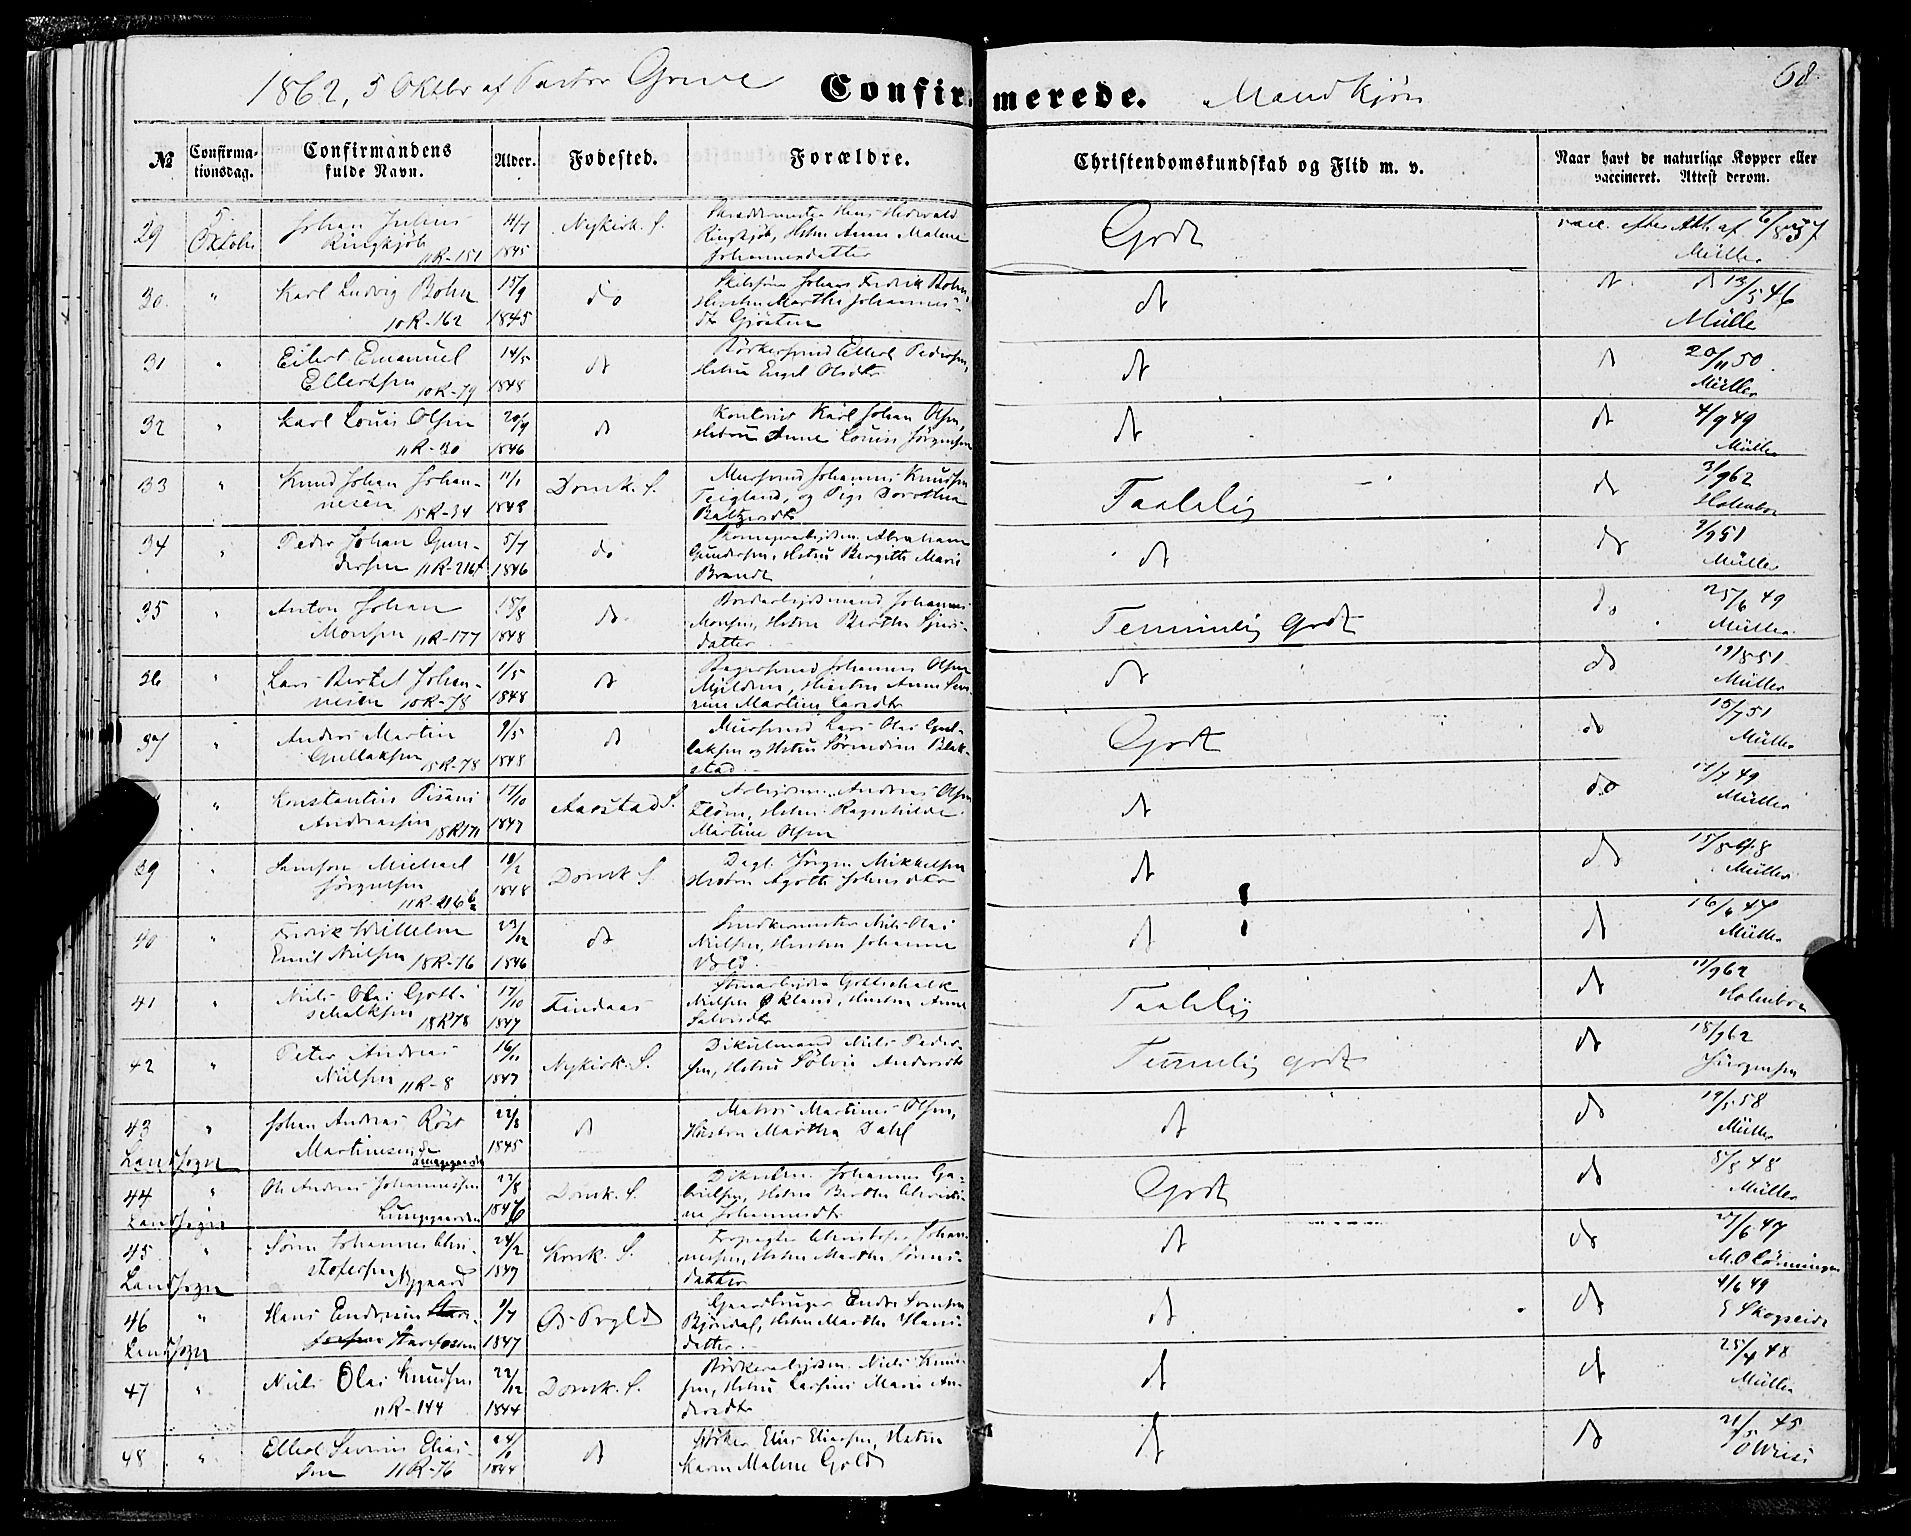 1862, 5 Oktbr af Pastor Grieve
Confirmerede.
Mandkjøn
68
№
Confirma-
tionsdag.
Confirmandens
fulde Navn.
Alder.
Fødested.
Forældre.
Christendomskundskab og Flid m. v.
Naar havt de naturlige Kopper eller
vaccineret. Attest derom.
29
5
Oktobr
Johan Julius
Ringkjøb
11R-151
11/7
1845
Nykirk. S.
Ringkjøb, Hstru Anne Malene
Johannesdatter
Godt
vacc. efter Att. af
Müller
30
"
Karl Ludvig Bohn
10R-162
15/9
1845
do
Johans Fredrik Bohn,
Hustru Martha Johannes-
dt
dt
13/5 46
Müller
31
"
Eilert Emanuel
Ellertsen 10R-79
14/5
1848
dt
Bödkersvend Ellert Pedersen,
Hstru Engel Olsdtr
dt
dt
20/11 50
Müller
32
"
Karl Louis Olsen
11R-20
20/9
1846
dt
Karl Johan Olsen,
Hstru Anne Louise Jørgensen
dt
dt
4/9 49
Müller
33
"
Knud Johan Johan-
nesen 15R-34
11/1
1848
Domk. S.
Mursvend Johannes Knudsen
Teigland, og Pige Dorothea
Baltzersdtr
Taalelig
dt
3/9 62
Holmboe
34
"
Peder Johan Gun-
dersen 11R-216
5/7
1846
do
Abraham
Gundersen, Hstru Bergitte Marie
Brandt
dt
do
9/7 51
Müller
35
"
Anton Johan
Monsen 11R-177
15/8
1848
do
Johannes
Monsen, Hstru Berthe Sjurs-
datter
Temmelig Godt
do
25/6 49
Müller
36
"
Lars Bertel Johan-
nesen 10R-78
1/5
1848
dt
Bagersvend Johannes Olsen
Mjeldem, Hustru Anne Seve-
rine Martine Larsdtr
dt
do
19/8 51
Müller
37
"
Anders Martin
Gullaksen 15R-78
9/5
1848
dt
Mursvend Lars Olai Gul-
laksen og Hstru Sørine Blak-
stad
Godt
do
15/7 51
Müller
"
Konstantin Pisani
Andreassen 18R171
17/10
1847
Aarstad S.
Andreas Olsen
Hstru Ragnhilde
Martine Olsen
dt
do
17/7 49
Müller
39
"
Samson Michael
Jørgensen
11R-216b
18/2
1848
Domk S.
Dagl. Jørgen Mikkelsen
Hustru Agathe Johnsdtr
dt
do
15/8 48
Müller
40
"
Fredrik Wilhelm
Emil Nielsen 18R-76
23/12
1846
dt
Snedkermester Niels Olai
Nielsen, Hustru Johanne
Vold
dt
dt
16/6 47
Müller
41
"
Niels Olai Gott-
schalksen
18R78
17/10
1847
Findaas
Gottschalk
Nielsen Økland, Hustru Anne
Salvesdtr
Taalelig
dt
11/9 62
Holmboe
42
"
Peter Andreas
Nielsen 11R-8
16/11
1847
Nykirk. S.
Dikselmand Niels Peder-
sen, Hstru Sølvie Andersdtr
Temmelig godt
dt
18/9 62
Jürgensen
43
"
Landsogn
Johan Andreas Röst
Martinesen
22/8
1845
dt
Matros Martines Olsen,
Hustru Martha Dahl
dt
do
19/5 58
Müller
44
"
Landsogn
Ole Andreas Johannessen
Lungegaarden
27/8
1846
Domk. S.
Johannes Ga-
brielsen, Hstru Berthe Christi-
ne Johannesdtr
Godt
dt
8/8 48
Müller
45
"
Landsogn
Søren Johannes Chri-
stofersen Nygaard
24/2
1847
Korsk. S.
Forpagter Christofer Johan-
nessen, Hstru Martha Sørens-
datter
dt
do
27/6 47
M. O Lønningen
46
"
Landsogn
Hans Endresen
Starefossen
9/7
1847
Gaardbruger Endre
Bjöndal, Hstru Marthe Hans-
datter
dt
dt
4/6 49
E Skogseide
47
"
Niels Olai Knudsen
11R-144
22/12
1844
Domk. S.
Niels Knud-
sen, Hstru Marie An-
dersdtr
dt
dt
25/4 48
Müller
48
"
Ellert Severin Elias-
sen 11R-76
24/
1844
dt
Elias Eliassen, Hstru
Karen Malene Gold
dt
do
21/5 45